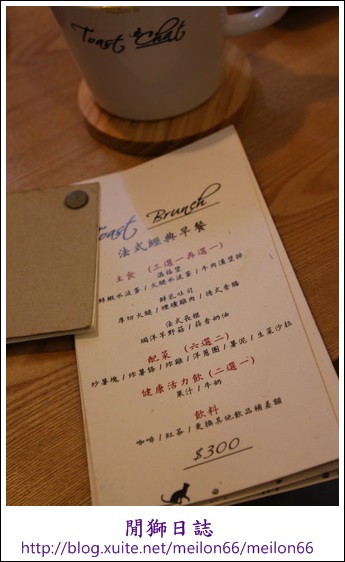 Toast & Chat
Toast Brunch
法式經典早餐
主食 (三選一再選一)
滿福堡
鮮蝦水波蛋/火腿水波蛋/牛肉漢堡排
鮮乳吐司
厚切火腿/煙燻雞肉/德式香腸
法式長棍
焗洋芋野菇/蒜香奶油
配菜 (六選二)
炒薯塊/炸薯條/炸雞/洋蔥圈/薯泥/生菜沙拉
健康活力飲 (二選一)
果汁/牛奶
飲料
咖啡/紅茶/更換其他飲品補差額
$300
閒獅日誌
http://blog.xuite.net/meilon66/meilon66